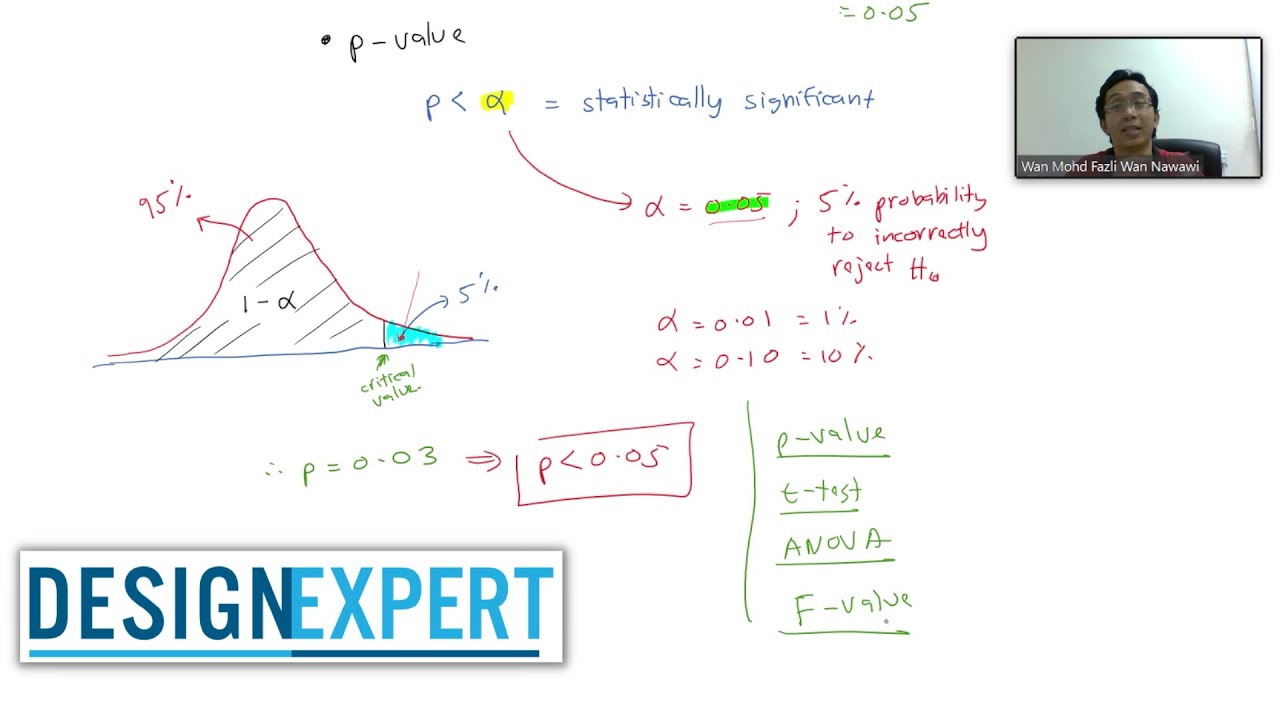 = 0.05
• p-value
p < α = statistically significant
Wan Mohd Fazli Wan Nawawi
95%
α = 0.05 ; 5% probability
to incorrectly
reject H₀
1 - α
5%
α = 0.01 = 1%
α = 0.10 = 10%
critical
value
∴ p = 0.03 ⇒ p < 0.05
p-value
t-test
ANOVA
F-value
DESIGNEXPERT